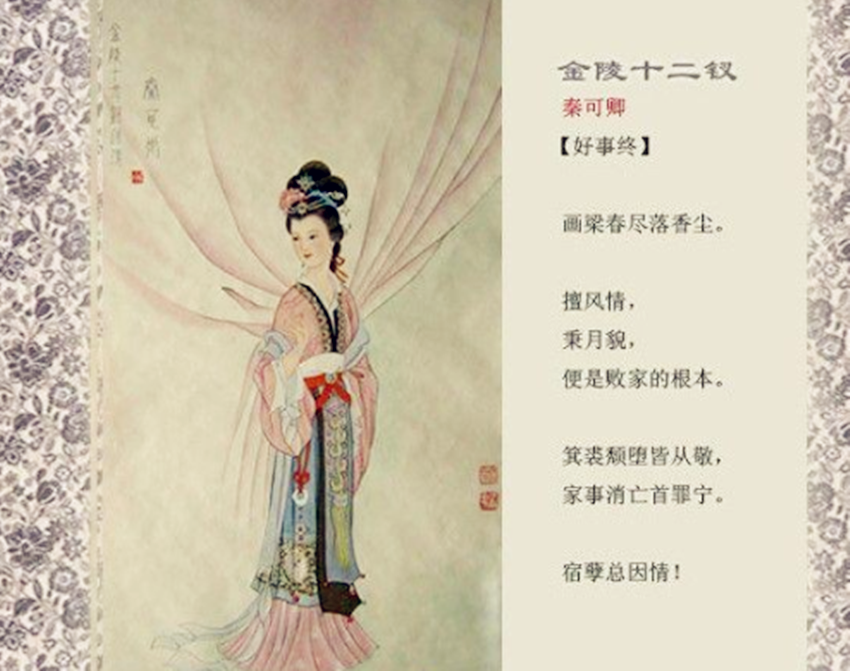 金陵十二钗
秦可卿
【好事终】
画梁春尽落香尘。
擅风情，
秉月貌，
便是败家的根本。
箕裘颓堕皆从敬，
家事消亡首罪宁。
宿孽总因情！
秦可卿
金陵十二